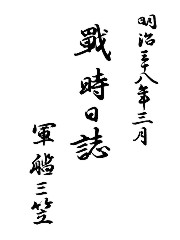 明治三十八年三月
戰時日誌
軍艦三笠